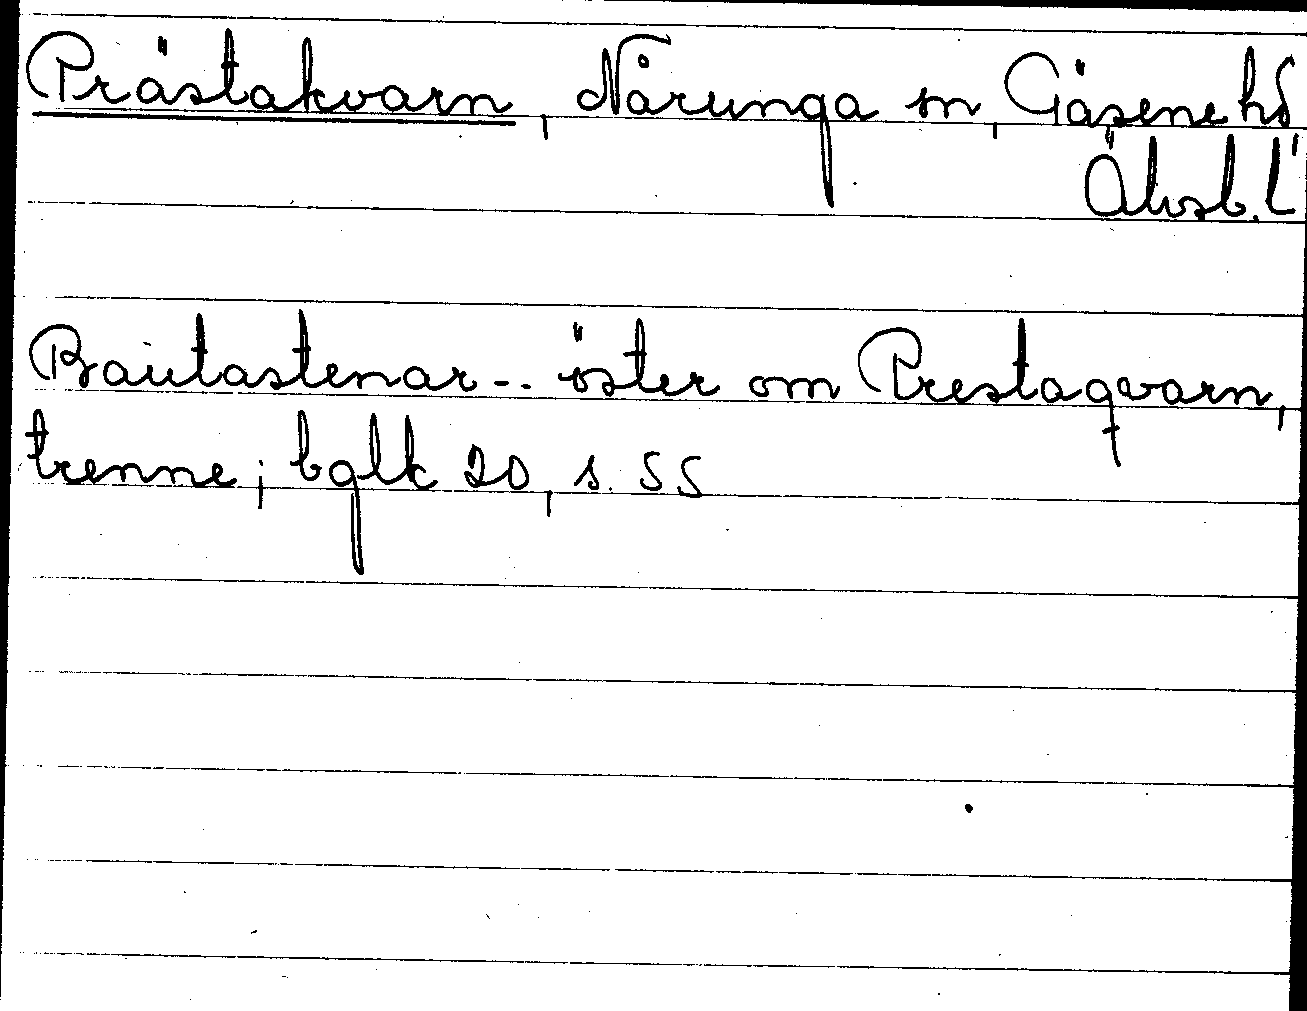 Prästakvarn, Nårunga sn, Gäsene hd
Älvsb. l
Bautastenar -.. öster om Prestaqvarn,
trenne; bglk 20, s. 55